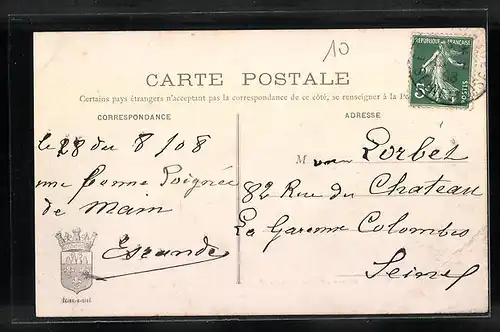 10
RÉPUBLIQUE FRANÇAISE
POSTES
5c
CARTE POSTALE
Certains pays étrangers n'acceptant pas la correspondance de ce côté, se renseigner à la
CORRESPONDANCE
le 28 du 8/08
une bonne Poignée
de Mam
ADRESSE
M Lorbet
82 Rue du Chateau
La Garenne Colombes
Seine